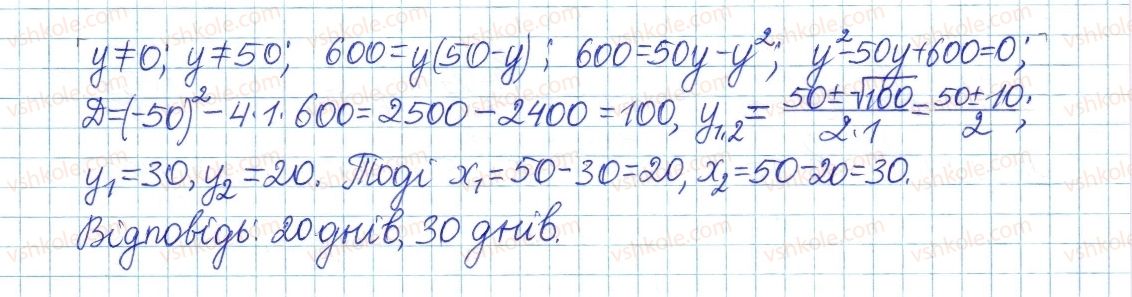 y≠0; y≠50; 600=y(50-y); 600=50y-y²; y²-50y+600=0;
Д=(-50)²-4·1·600=2500-2400=100, y₁,₂=(50±√100)/(2·1)=(50±10)/2;
y₁=30, y₂=20. Тоді x₁=50-30=20, x₂=50-20=30.
Відповідь: 20 днів, 30 днів.